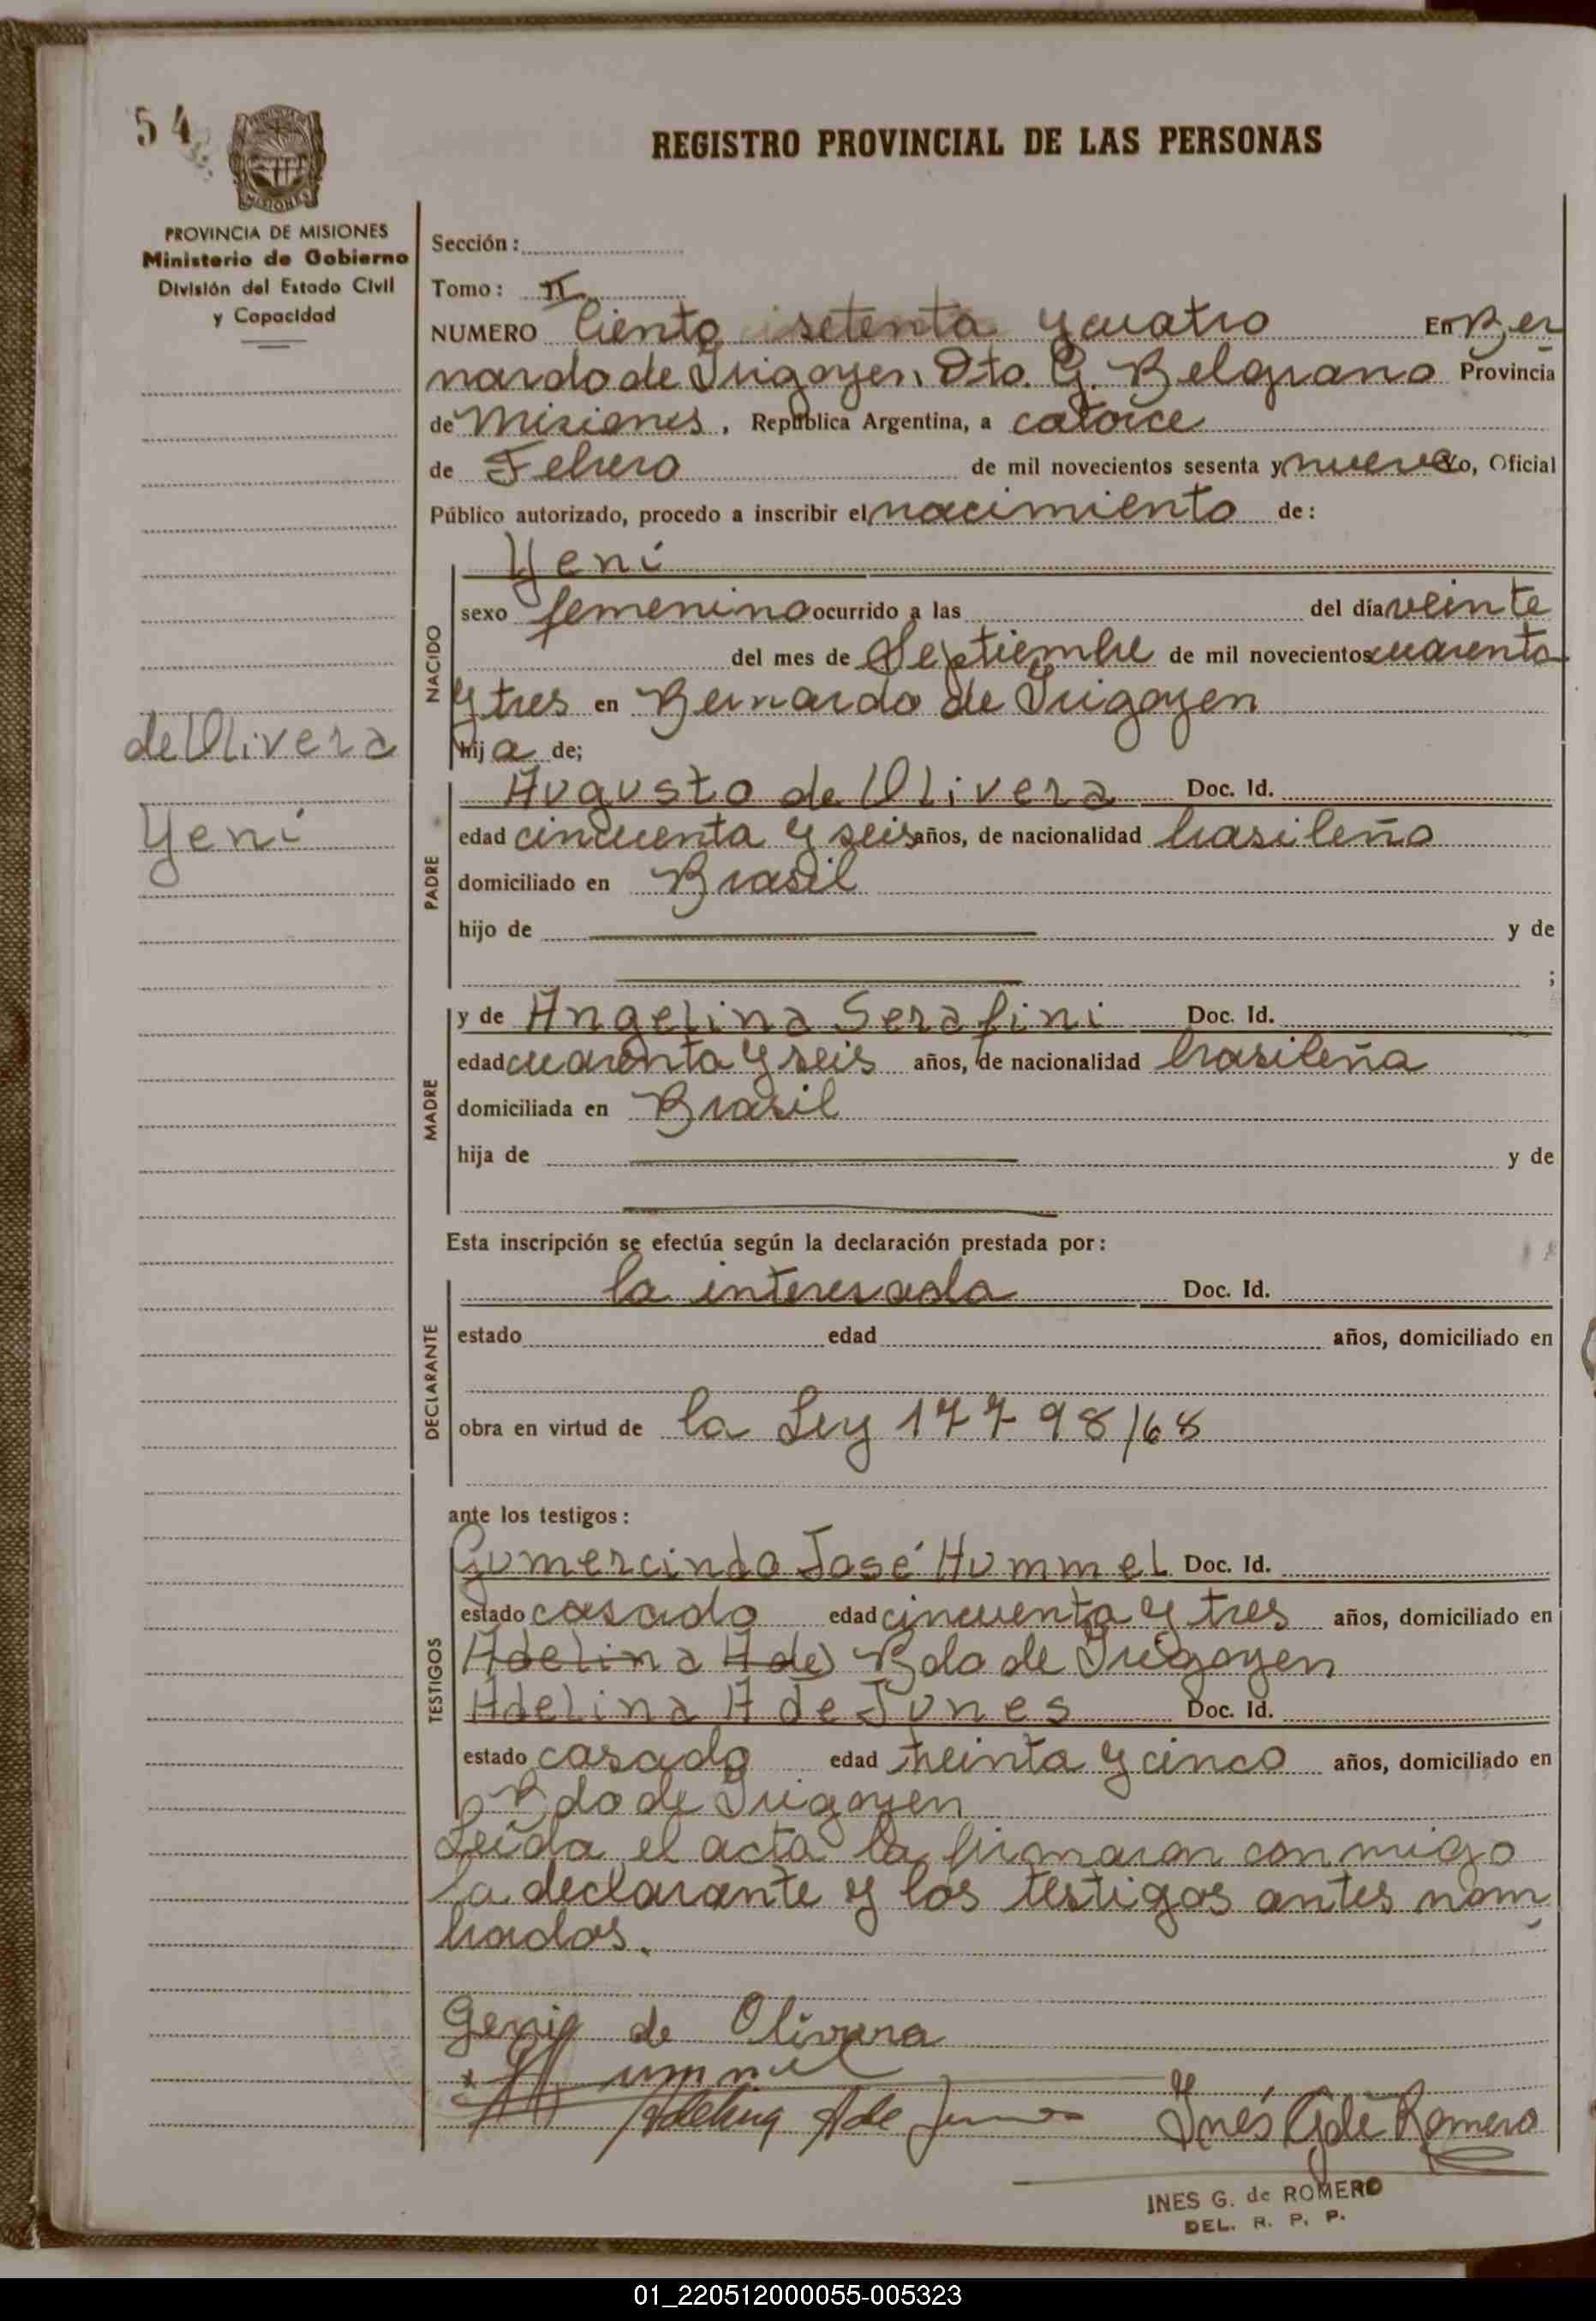 54
REGISTRO PROVINCIAL DE LAS PERSONAS
PROVINCIA DE MISIONES
Ministerio de Gobierno
División del Estado Civil
y Capacidad
Sección:
Tomo: II
NUMERO Ciento setenta y cuatro En Ber
nardo de Irigoyen, Dto. G. Belgrano Provincia
de Misiones, República Argentina, a catorce
de Febrero de mil novecientos sesenta y nueve Yo, Oficial
Público autorizado, procedo a inscribir el nacimiento de:
Yeni
NACIDO
sexo femenino ocurrido a las del día veinte
del mes de Septiembre de mil novecientos cuarenta
y tres en Bernardo de Irigoyen
hija de;
de Olivera
Yeni
PADRE
Augusto de Olivera Doc. Id.
edad cincuenta y seis años, de nacionalidad brasileño
domiciliado en Brasil
hijo de y de
;
MADRE
y de Angelina Serafini Doc. Id.
edad cuarenta y seis años, de nacionalidad brasileña
domiciliada en Brasil
hija de y de
Esta inscripción se efectúa según la declaración prestada por:
DECLARANTE
la interesada Doc. Id.
estado edad años, domiciliado en
obra en virtud de la Ley 17798/68
ante los testigos:
TESTIGOS
Gumercindo José Hummel Doc. Id.
estado casado edad cincuenta y tres años, domiciliado en
Adelina A de) Bdo de Irigoyen
Adelina A de Junes Doc. Id.
estado casado edad treinta y cinco años, domiciliado en
Bdo de Irigoyen
Leída el acta la firmaron conmigo
la declarante y los testigos antes nom
brados.
Genig de Olivera
Hummel
Adelina A de Junes Inés G de Romero
INES G. de ROMERO
DEL. R. P. P.
01_220512000055-005323